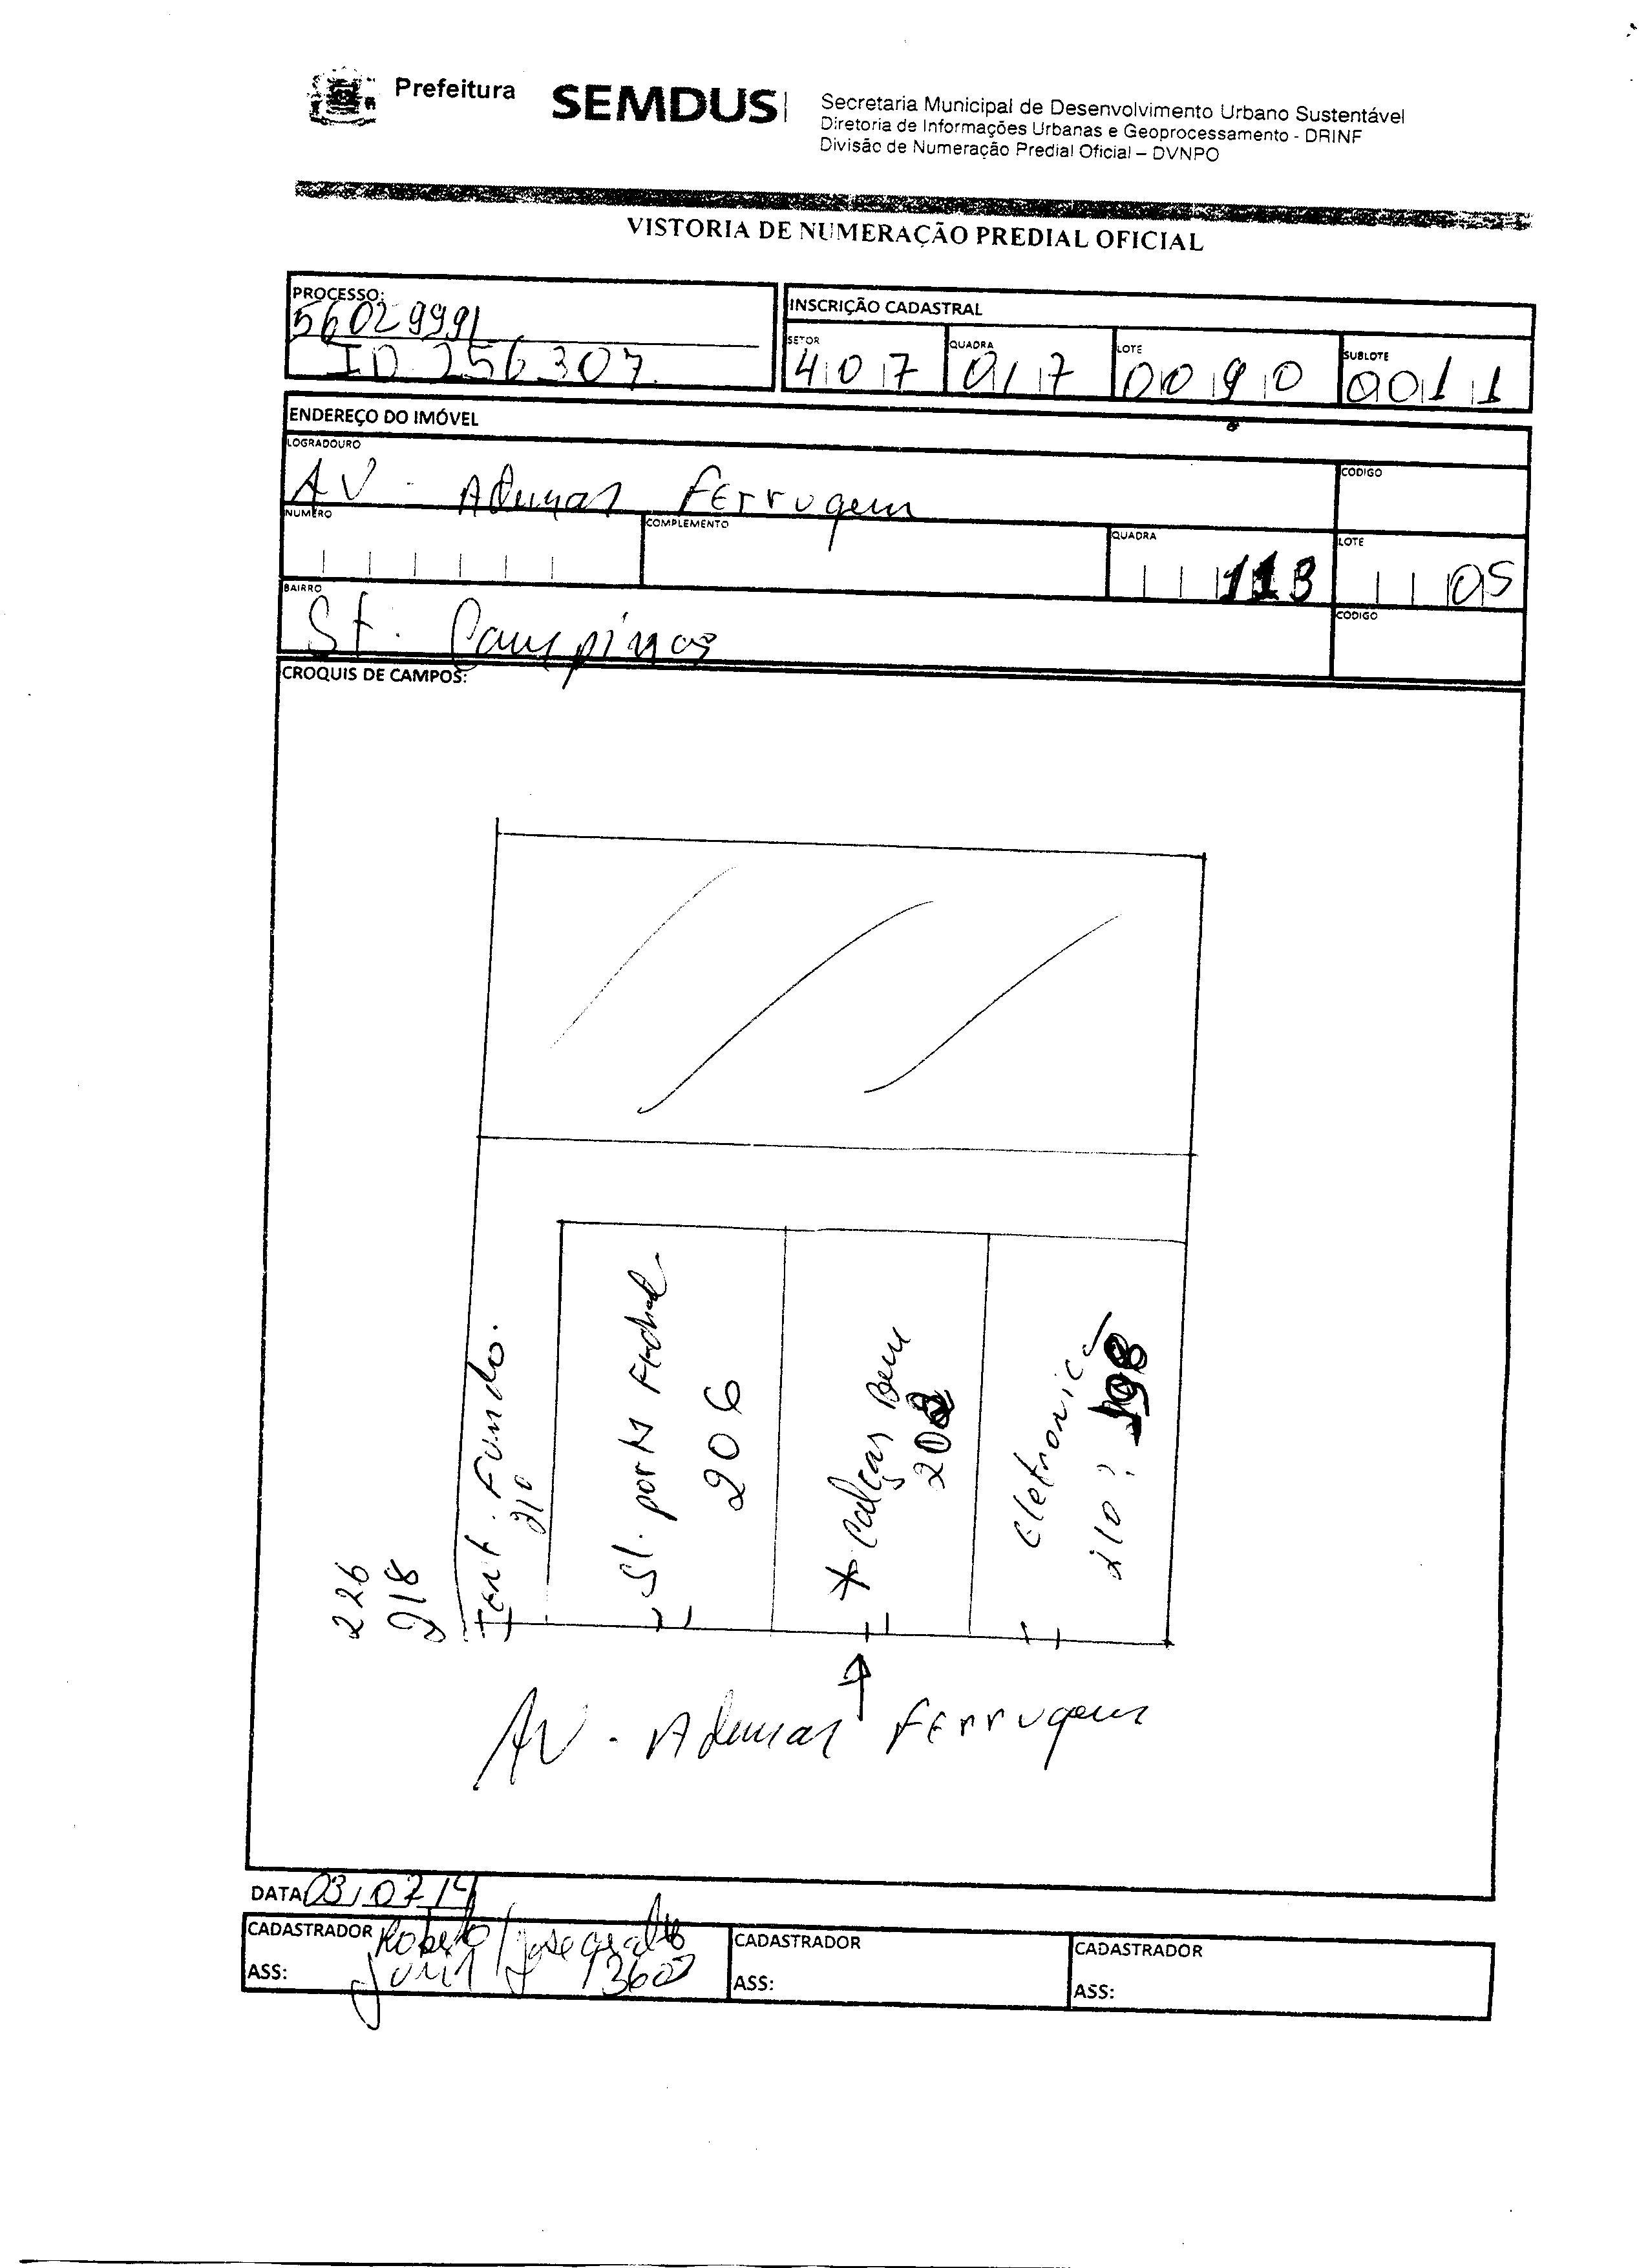 Prefeitura
SEMDUS
Secretaria Municipal de Desenvolvimento Urbano Sustentável
Diretoria de Informações Urbanas e Geoprocessamento - DRINF
Divisão de Numeração Predial Oficial – DVNPO
VISTORIA DE NUMERAÇÃO PREDIAL OFICIAL
PROCESSO:
56029991
ID 256307
INSCRIÇÃO CADASTRAL
SETOR QUADRA LOTE SUBLOTE
407 017 0090 0011
ENDEREÇO DO IMÓVEL
LOGRADOURO CODIGO
AV. Ademar Ferrugem
NUMERO COMPLEMENTO QUADRA LOTE
113 05
BAIRRO CODIGO
St. Campinas
CROQUIS DE CAMPOS:
226
218
Fundo.
210
Sl. porta
206
Calças Bem
202
Eletronica
210? 198
AV. Ademar Ferrugem
DATA 03/07/14
CADASTRADOR Roberto / CADASTRADOR CADASTRADOR
ASS: ASS: ASS: